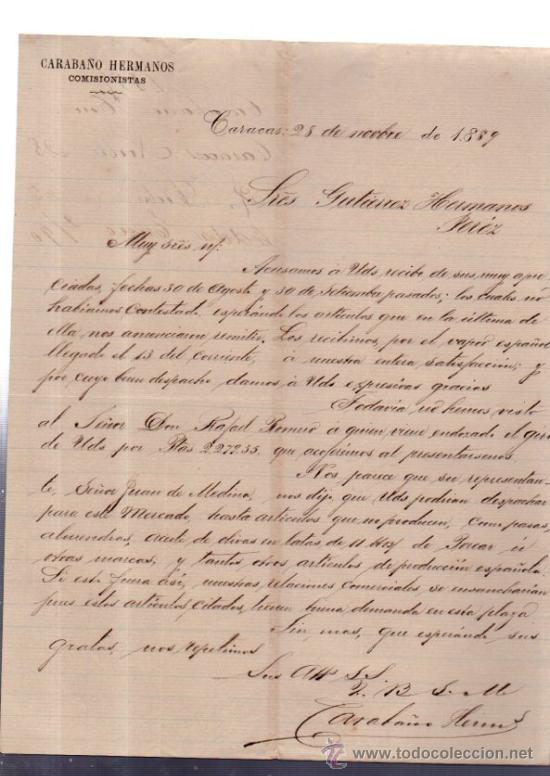 CARABAÑO HERMANOS
COMISIONISTAS
Caracas: 28 de novbre de 1889
Sres Gutierrez Hermanos
Jeréz
Muy Sres n/.
Acusamos á Uds recibo de sus muy apre
ciadas, fechas 30 de Agosto y 30 de Setiembre pasados; las cuales no
habiamos Contestado esperando los articulos que en la última de
ella nos anunciaron remitir. Los recibimos, por el vapor español
llegado el 13 del Corriente, á nuestra entera satisfacción; y
por cuyo buen despacho damos á Uds expresivas gracias
Todavia no hemos visto
al Señor Don Rafael Romero á quien viene endozado el giro
de Uds por Ptas 227255 que acojeremos al presentarsenos
Nos parece que su representan-
te, Señor Juan de Medina, nos dijo que Uds podrian despachar
para este Mercado, hasta articulos que no producen, como pasas,
almendras, aceite de olivas en latas de de Tocar ú
otras marcas, y tantos otros articulos de producción española.
Si esto fuera así, nuestras relaciones comerciales se ensancharian
pues estos articulos citados, tienen buena demanda en esta plaza
Sin mas, que esperando sus
gratas, nos repetimos
Sus Att S.S.
Q. B. S. M
Carabaño Hermos
www.todocoleccion.net